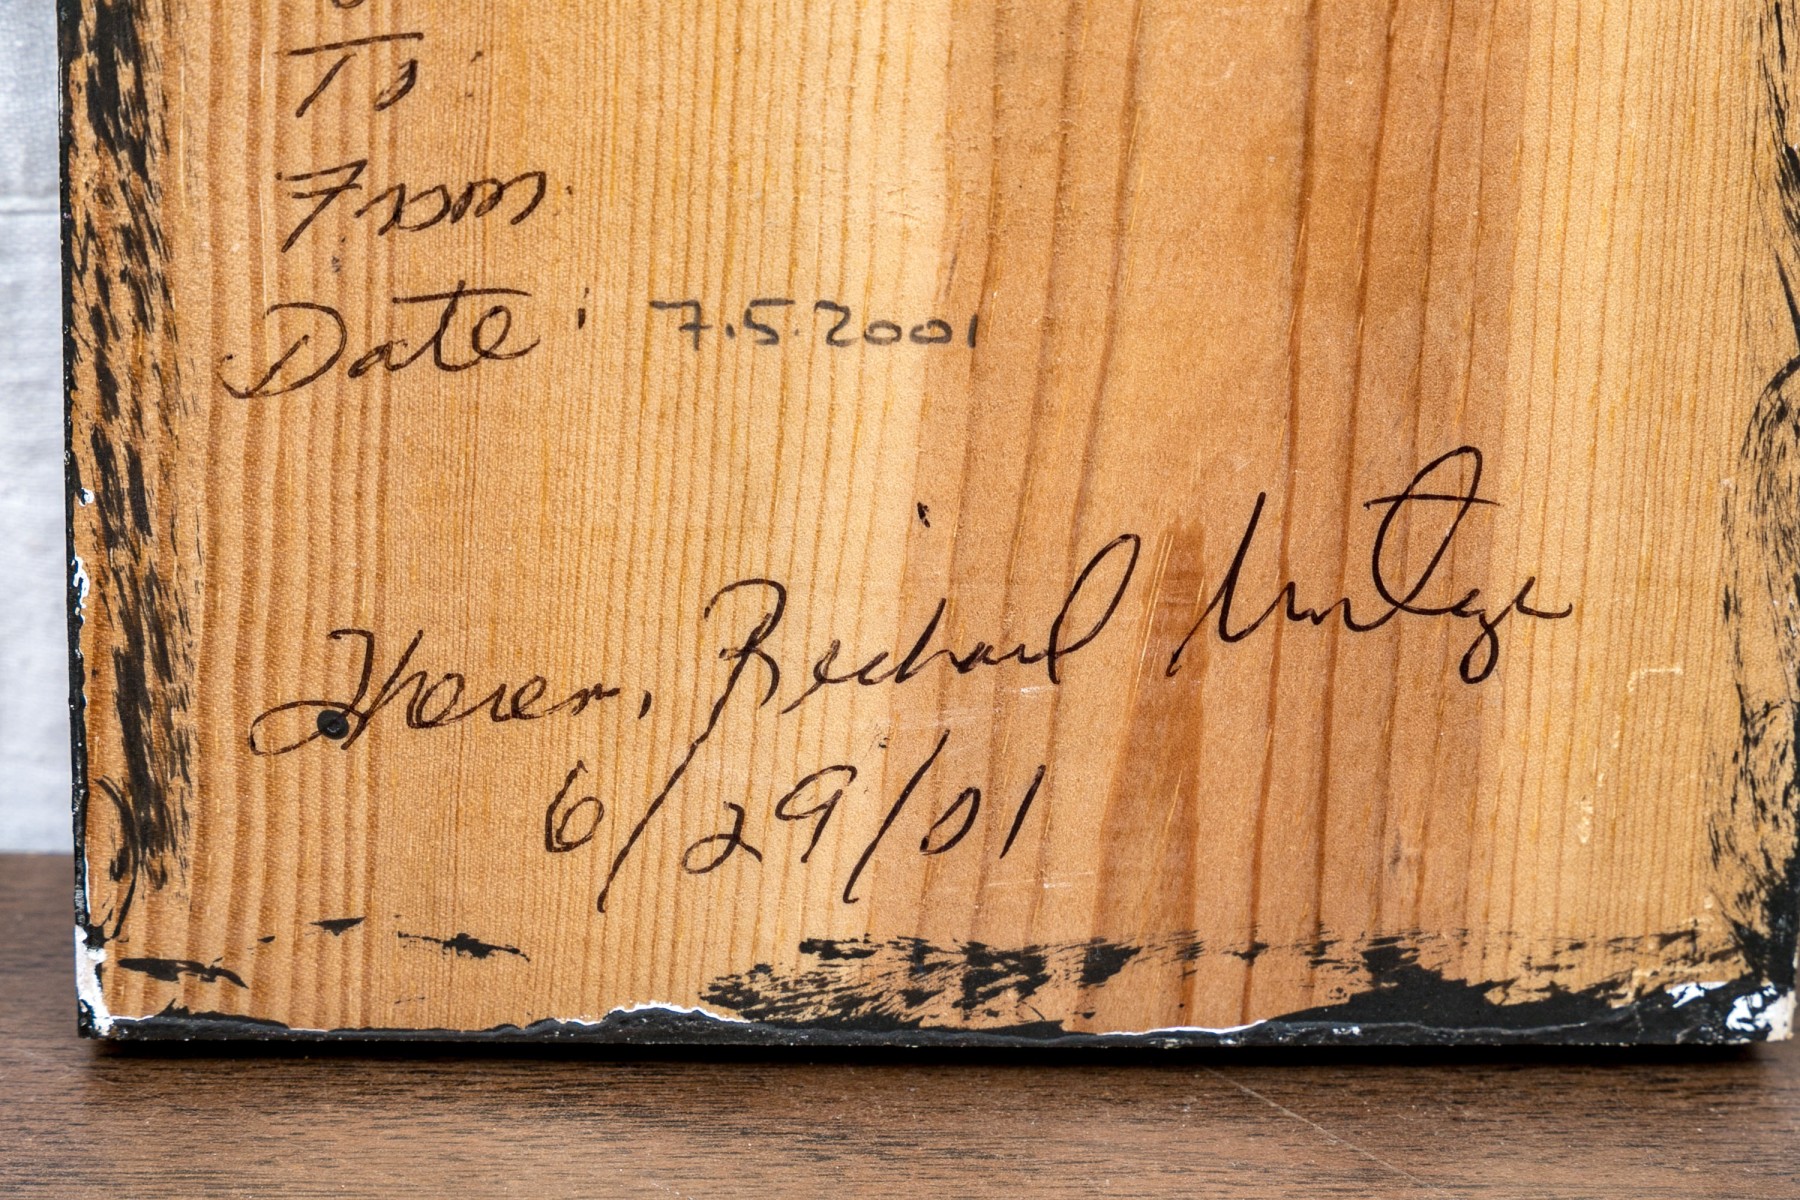 To:
From:
Date: 7.5.2001
Richard
6/29/01